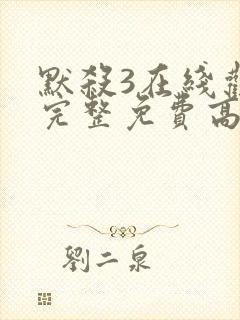 默殺3在綫
完整免費高
劉二泉